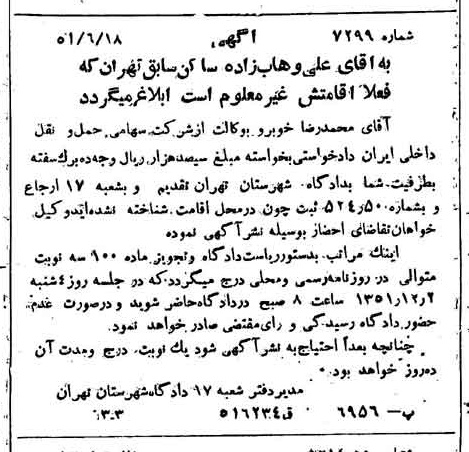 شماره ۷۲۹۹ آگهی ۵۱/۶/۱۸
به آقای علی وهاب‌زاده ساکن سابق تهران که
فعلاً اقامتش غیر معلوم است ابلاغ میگردد
آقای محمدرضا خوبرو بوکالت از شرکت سهامی حمل و نقل
داخلی ایران دادخواستی بخواسته مبلغ سیصد هزار ریال وجه ده برك سفته
بطرفیت شما بدادگاه شهرستان تهران تقدیم و بشعبه ۱۷ ارجاع
و بشماره ۵۰ر۵۲۴ ثبت چون در محل اقامت شناخته نشده‌اید وکیل
خواهان تقاضای احضار بوسیله نشر آگهی نموده
اینك مراتب بدستور ریاست دادگاه و تجویز ماده ۱۰۰ سه نوبت
متوالی در روزنامه رسمی و محلی درج میگردد که در جلسه روز ۴ شنبه
۲ر۱۲ر۱۳۵۱ ساعت ۸ صبح در دادگاه حاضر شوید و در صورت عدم
حضور دادگاه رسیدگی و رای مقتضی صادر خواهد نمود.
چنانچه بعداً احتیاج به نشر آگهی شود یك نوبت درج و مدت آن
ده روز خواهد بود.
مدیر دفتر شعبه ۱۷ دادگاه شهرستان تهران
پ – ۶۹۵۶ ق ۵۱۶۲۳۴ ۳-۳